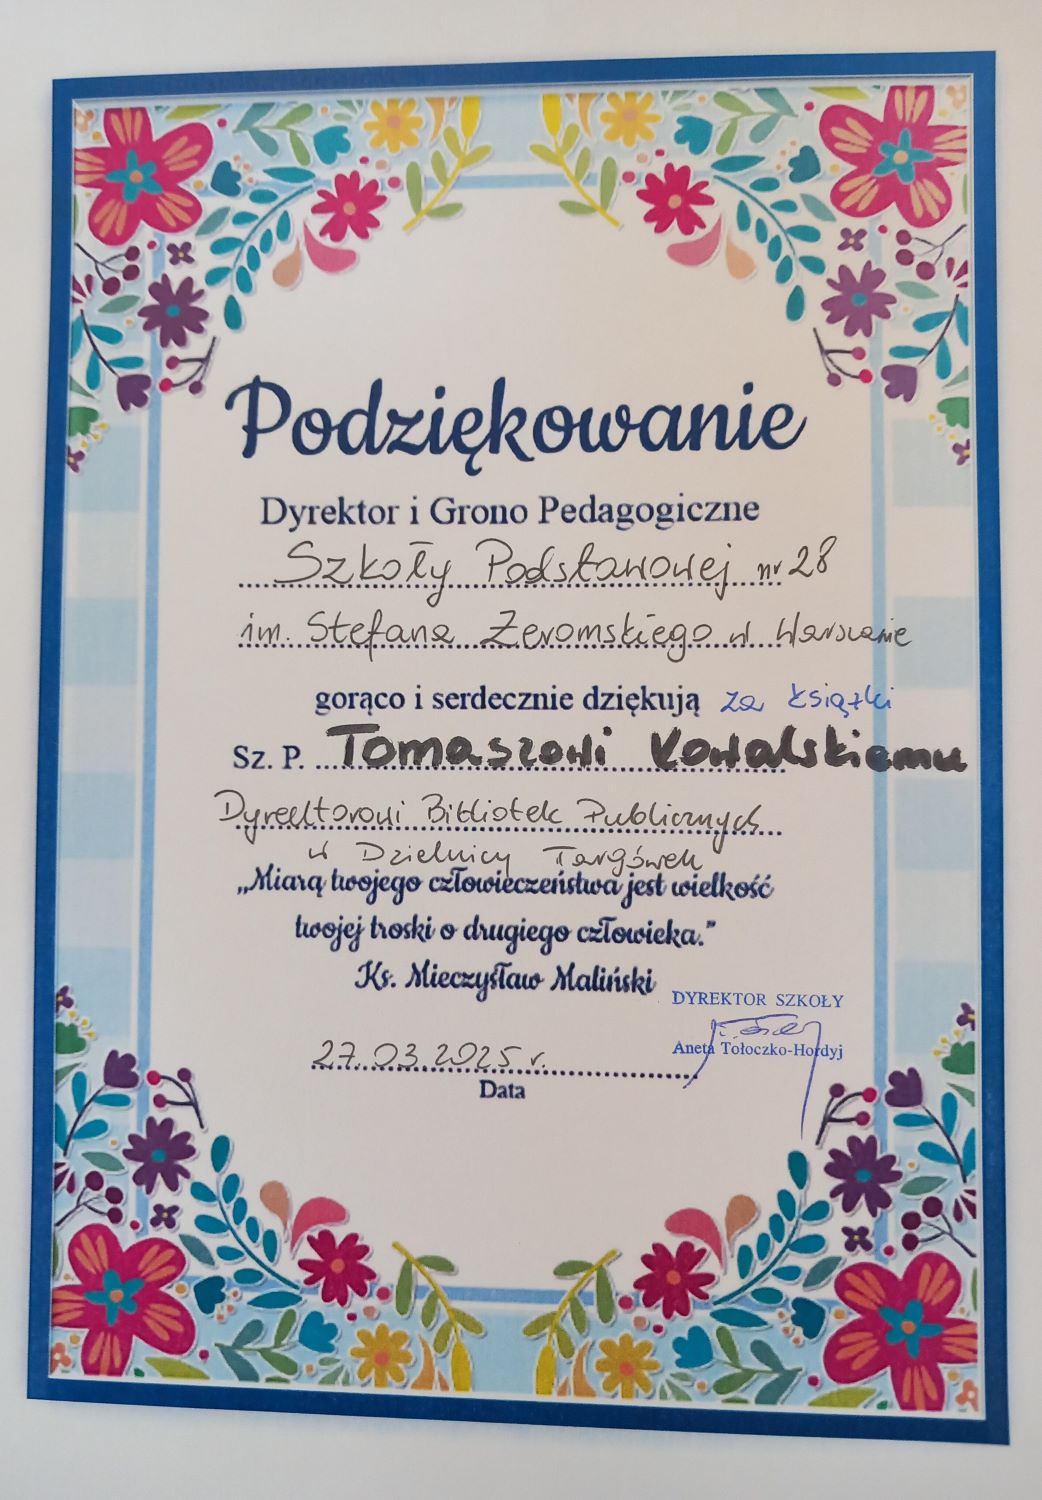 Podziękowanie
Dyrektor i Grono Pedagogiczne
Szkoły Podstawowej nr 28
im. Stefana Żeromskiego w Warszawie
gorąco i serdecznie dziękują za książki
Sz. P. Tomaszowi Kowalskiemu
Dyrektorowi Bibliotek Publicznych
w Dzielnicy Targówek
„Miarą twojego człowieczeństwa jest wielkość
twojej troski o drugiego człowieka."
Ks. Mieczysław Maliński
DYREKTOR SZKOŁY
Aneta Tołoczko-Hordyj
27.03.2025 r.
Data